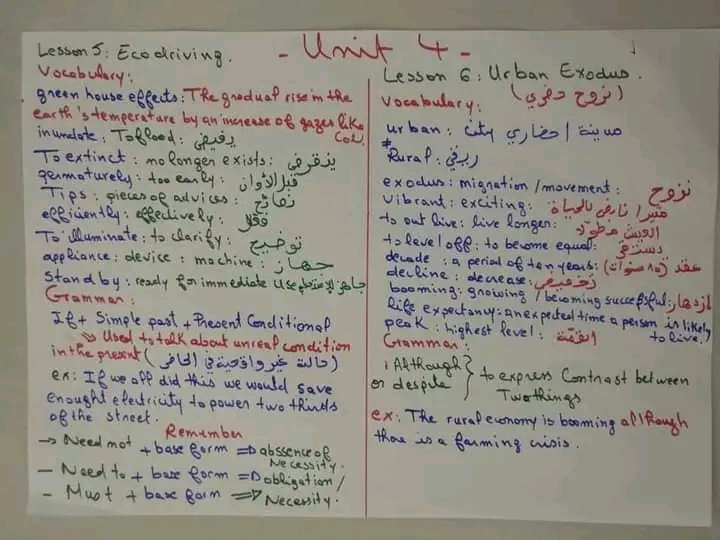 - Unit 4 -
Lesson 5: Ecodriving.
Vocabulary:
green house effects: The gradual rise in the
earth's temperature by an increase of gazes like
Co2.
inundate: To flood: يفيض
To extinct: no longer exists: ينقرض
germaturely: too early: قبل الأوان
Tips: pieces of advices: نصائح
efficiently: effectively:
To illuminate: to clarify: توضيح
appliance: device: machine: جهاز
Stand by: ready for immediate use جاهز للاستعمال
Grammar:
If + Simple past + Present Conditional
Used to talk about unreal condition
in the present (حالة غير واقعية في الحاضر)
ex: If we all did this we would save
enought electricity to power two thirds
of the street.
Remember
→ Need not + base form ⇒ abssence of
Necessity.
- Need to + base form ⇒ obligation /
- Must + base form ⇒ Necessity.
Lesson 6: Urban Exodus.
(نزوح ريفي)
Vocabulary:
urban: city مدينة / حضاري
# Rural: ريفي
exodus: migration / movement: نزوح
Vibrant: exciting: نابض بالحياة
to out live: live longer:
to level off: to become equal:
decade: a period of ten years: عقد (10 سنوات)
decline: decrease:
booming: growing / becoming successful: ازدهار
life expectany: an expected time a person is likely
to live.
peak: highest level: القمة
Grammar:
Although } to express Contrast between
or despite } Two things
ex: The rural economy is booming although
there is a farming crisis.